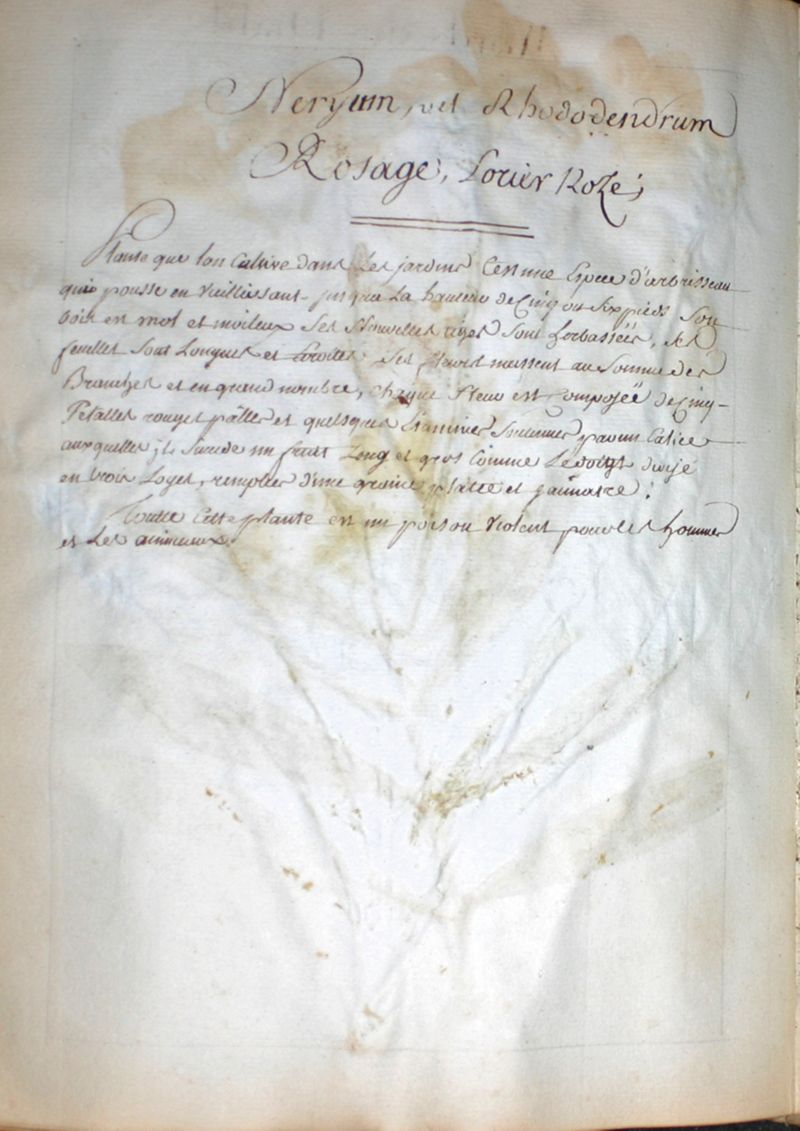 Neryum, vel Rhododendrum
Rosage, Lorier Roze;
Plante que lon Cultive dans Les jardins C'est une Espece d'arbrisseau
qui pousse en vieillissant jusqua La hauteur de Cinq ou Six pieds Son
bois est mol et moileux Ses Nouvelles tiges Sont herbassëes, Ses
feuilles Sont Longues et Etroites, Ses fleurs naissent au Sommet des
Branches et en grand nombre, Chaque fleur est Composëe de Cinq
Petalles rouges palles et quelques Etamines Soutenues par un Calice
auxquelles il Succede un fruit Long et gros Comme Le doigt divisé
en trois Loges, remplies d'une graine platte et jaunatre.
Toutte Cette plante est un poison Violent pour les hommes
et Les animaux.